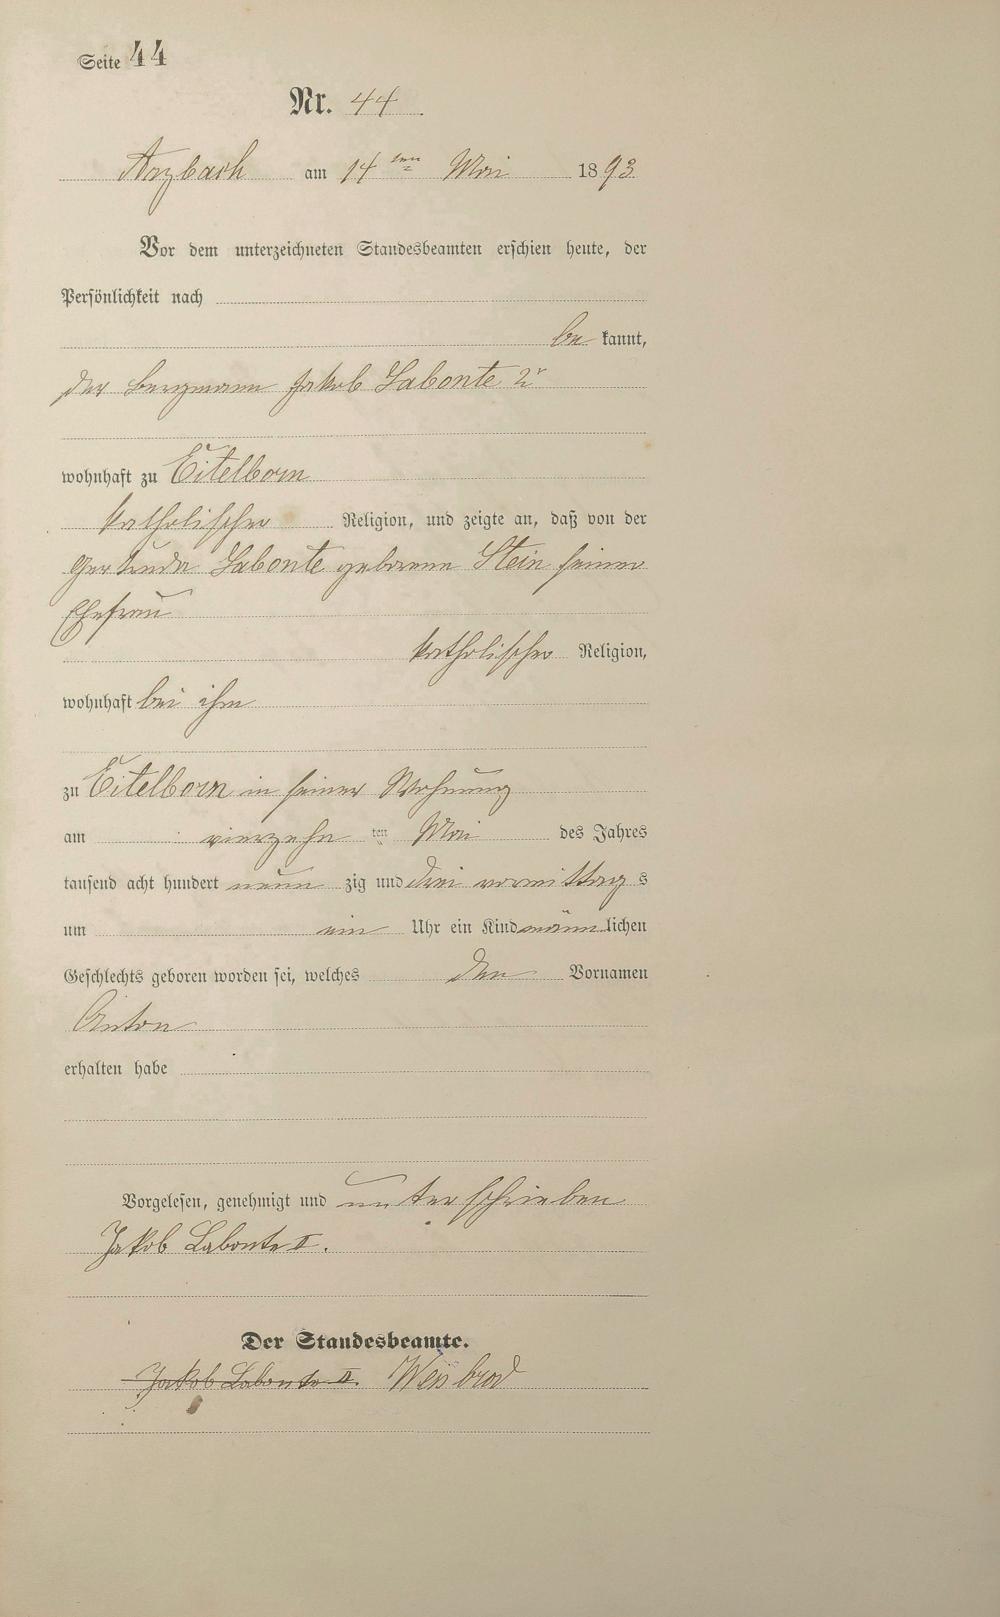 Seite 44
Nr. 44
Arzbach am 14ten Mai 1893
Vor dem unterzeichneten Standesbeamten erschien heute, der
Persönlichkeit nach
be kannt,
der Bergmann Jakob Labonte 2r
wohnhaft zu Eitelborn
katholischer Religion, und zeigte an, daß von der
Gertrude Labonte geborene Stein seiner
Ehefrau
katholischer Religion,
wohnhaft bei ihm
zu Eitelborn in seiner Wohnung
am vierzehn ten Mai des Jahres
tausend acht hundert neun zig und drei vormittag s
um ein Uhr ein Kind männ lichen
Geschlechts geboren worden sei, welches den Vornamen
Anton
erhalten habe
Vorgelesen, genehmigt und unterschrieben
Jakob Labonte II.
Der Standesbeamte.
Jakob Labonte II. Weisbrod